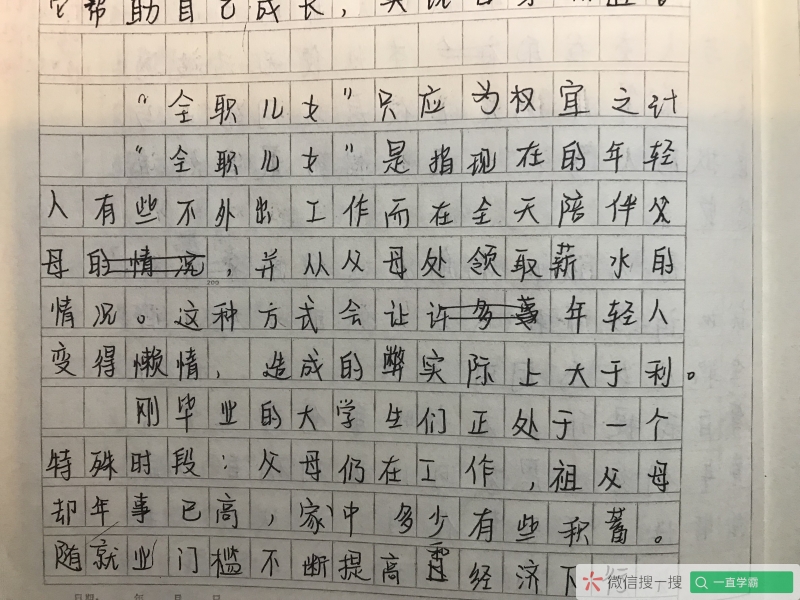 它帮助自己成长，实现
“全职儿女”只应为权宜之计
“全职儿女”是指现在的年轻
人有些不外出工作而在全天陪伴父
母的情况，并从父母处领取薪水的
情况。这种方式会让许多年轻人
变得懒惰，造成的弊实际上大于利。
刚毕业的大学生们正处于一个
特殊时段：父母仍在工作，祖父母
却年事已高，家中多少有些积蓄。
随就业门槛不断提高 经济下行
日期： 年 月 日
微信搜一搜 一直学霸